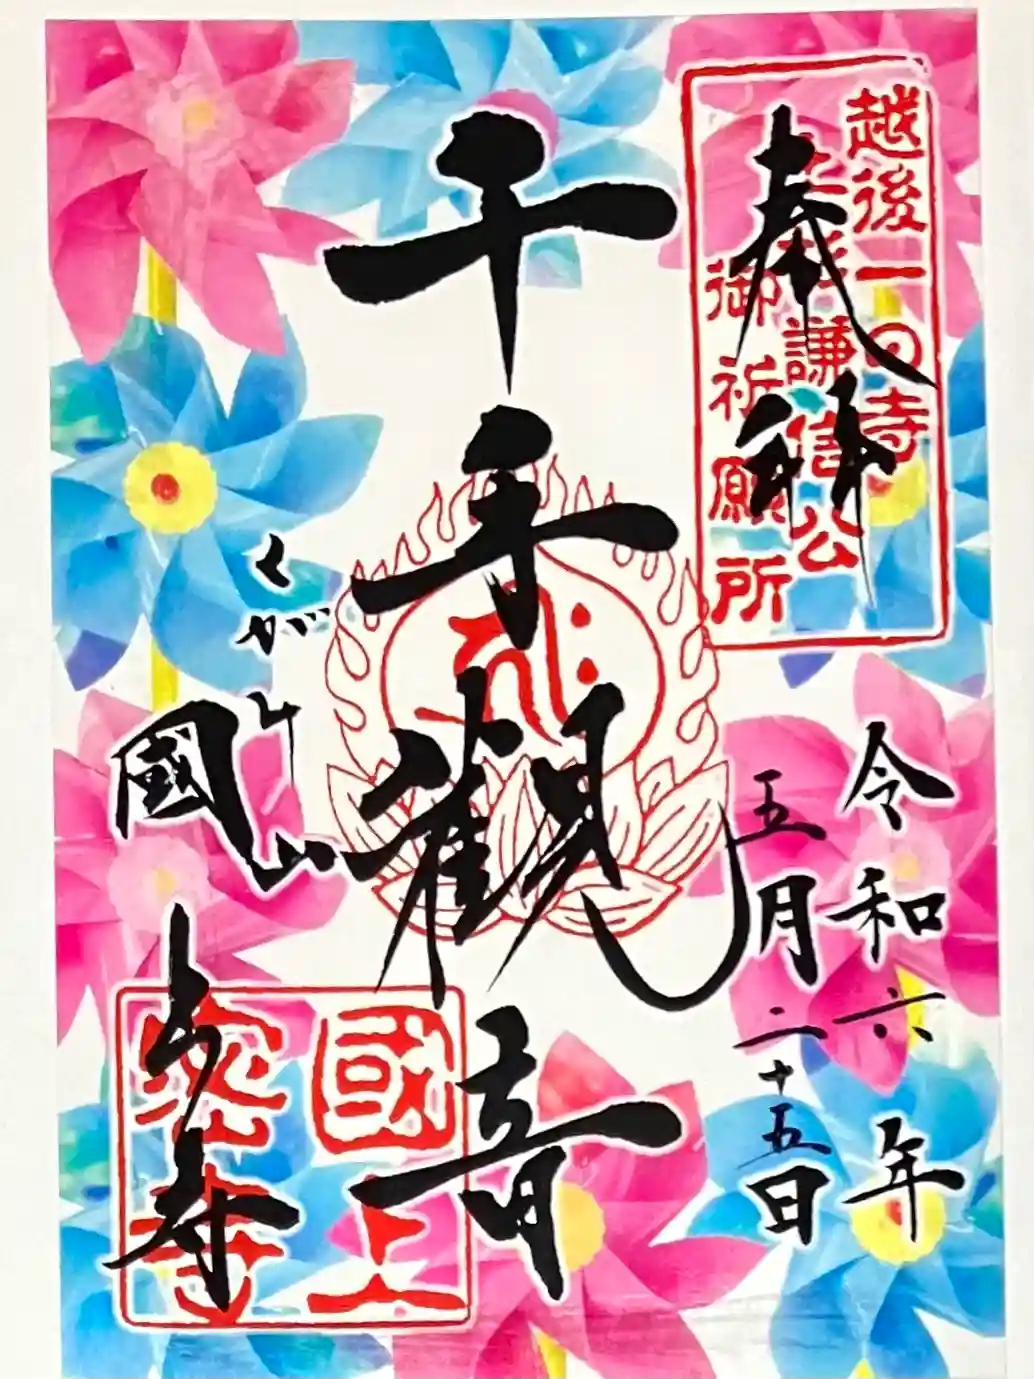 越後一の寺
上杉謙信公
御祈願所
奉拝
令和六年
五月二十五日
千手觀音
くがみ山
國上寺
國上
寺